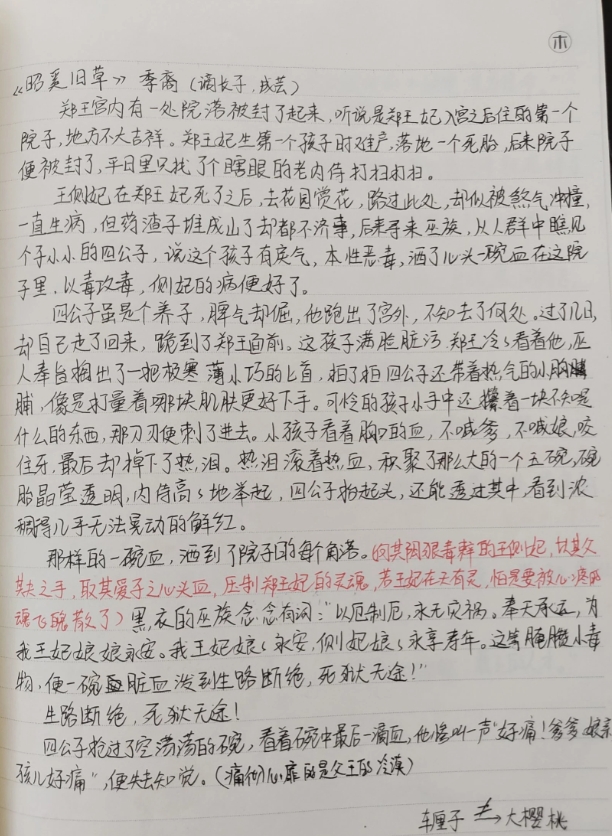 木
《昭奚旧草》 季裔 (嫡长子，成芸)
郑王宫内有一处院落被封了起来，听说是郑王妃入宫之后住的第一个
院子，地方不大吉祥。郑王妃生第一个孩子时难产，落地一个死胎，后来院子
便被封了，平日里只找了个瞎眼的老内侍打扫打扫。
王侧妃在郑王妃死了之后，去花园赏花，路过此处，却似被煞气冲撞，
一直生病，但药渣子堆成山了却都不济事，后来寻来巫族，从人群中瞧见
个子小小的四公子，说这个孩子有戾气，本性恶毒，洒了心头一碗血在这院
子里，以毒攻毒，侧妃的病便好了。
四公子虽是个养子，脾气却倔，他跑出了宫外，不知去了何处。过了几日，
却自己走了回来，跪到了郑王面前。这孩子满脸脏污，郑王冷冷看着他，巫
人奉旨掏出了一把极寒薄小巧的匕首，拍了拍四公子还带着热气的小胸
脯，像是打量着哪块肌肤更好下手。可怜的孩子小手中还攥着一块不知是
什么的东西，那刀刃便刺了进去。小孩子看着胸口的血，不喊爹，不喊娘，咬
住牙，最后却掉下了热泪。热泪滚着热血，积聚了那么大的一个玉碗，碗
胎晶莹透明，内侍高高地举起，四公子抬起头，还能透过其中，看到浓
稠得几乎无法晃动的鲜红。
那样的一碗血，洒到了院子的每个角落。(何其阴狠毒辣的王侧妃，以其父
其夫之手，取其爱子之心头血，压制郑王妃的灵魂，若王妃在天有灵，怕是要被心疼的
魂飞魄散了) 黑衣的巫族念念有词："以厄制厄，永无灾祸。奉天承运，为
我王妃娘娘永安。我王妃娘娘永安，侧妃娘娘永享寿年。这等腌臜小毒
物，便一碗脏血泼到生路断绝，死狱无途！"
生路断绝，死狱无途！
四公子抢过了空荡荡的碗，看着碗中最后一滴血，他惨叫一声"好痛！爹爹 娘亲
孩儿好痛"，便失去知觉。(痛彻心扉的是父王的冷漠)
车厘子 ≠ 大樱桃